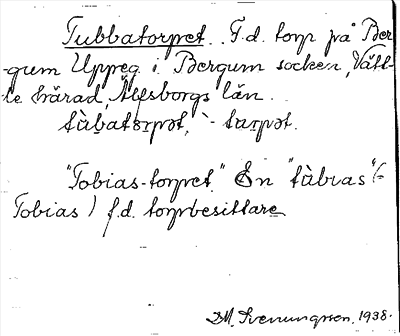 Tubbatorpet. F.d. torp på Ber-
gum Uppeg. i Bergum socken, Vätt-
le härad, Älvsborgs län.
tùbatərpət, `- tərpət.
"Tobias-torpet." En "tùbias" (=
Tobias) f.d. torpbesittare
D.M. Svenungsson. 1938.